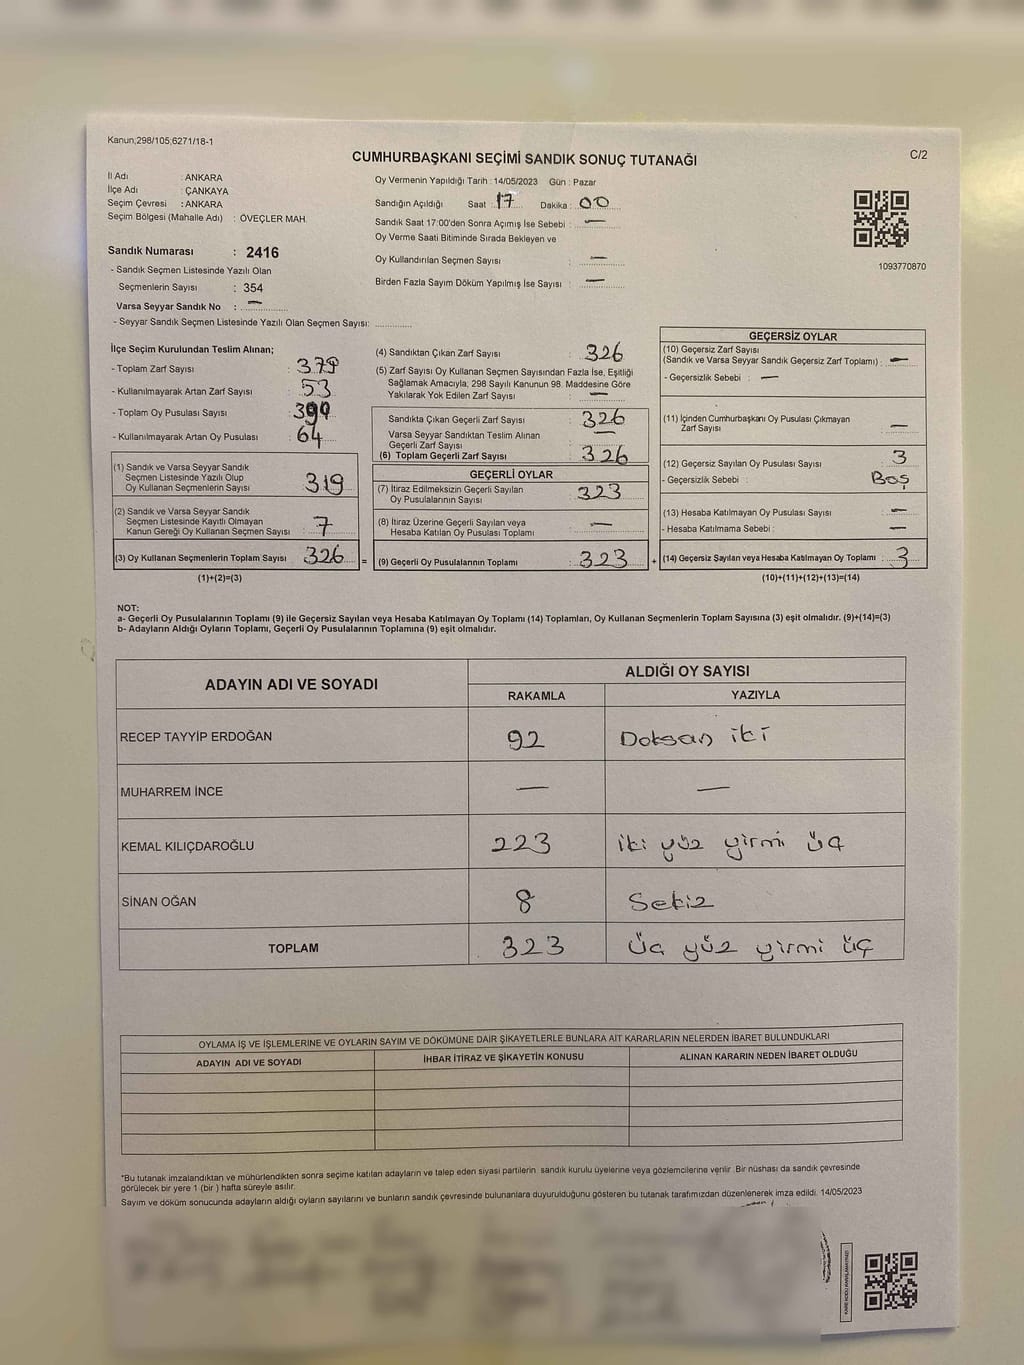 Kanun;298/105;6271/18-1
CUMHURBAŞKANI SEÇİMİ SANDIK SONUÇ TUTANAĞI
C/2
İl Adı : ANKARA
İlçe Adı : ÇANKAYA
Seçim Çevresi : ANKARA
Seçim Bölgesi (Mahalle Adı) : ÖVEÇLER MAH.
Sandık Numarası : 2416
- Sandık Seçmen Listesinde Yazılı Olan
Seçmenlerin Sayısı : 354
Varsa Seyyar Sandık No : —
- Seyyar Sandık Seçmen Listesinde Yazılı Olan Seçmen Sayısı: ............
Oy Vermenin Yapıldığı Tarih : 14/05/2023 Gün : Pazar
Sandığın Açıldığı Saat : 17 Dakika : 00
Sandık Saat 17:00'den Sonra Açımış İse Sebebi : —
Oy Verme Saati Bitiminde Sırada Bekleyen ve
Oy Kullandırılan Seçmen Sayısı : —
Birden Fazla Sayım Döküm Yapılmış İse Sayısı : —
1093770870
İlçe Seçim Kurulundan Teslim Alınan;
- Toplam Zarf Sayısı : 379
- Kullanılmayarak Artan Zarf Sayısı : 53
- Toplam Oy Pusulası Sayısı :
- Kullanılmayarak Artan Oy Pusulası : 64
(1) Sandık ve Varsa Seyyar Sandık
Seçmen Listesinde Yazılı Olup
Oy Kullanan Seçmenlerin Sayısı : 319
(2) Sandık ve Varsa Seyyar Sandık
Seçmen Listesinde Kayıtlı Olmayan
Kanun Gereği Oy Kullanan Seçmen Sayısı : 7
(3) Oy Kullanan Seçmenlerin Toplam Sayısı : 326
(1)+(2)=(3)
=
(4) Sandıktan Çıkan Zarf Sayısı : 326
(5) Zarf Sayısı Oy Kullanan Seçmen Sayısından Fazla İse, Eşitliği
Sağlamak Amacıyla; 298 Sayılı Kanunun 98. Maddesine Göre
Yakılarak Yok Edilen Zarf Sayısı : —
Sandıkta Çıkan Geçerli Zarf Sayısı : 326
Varsa Seyyar Sandıktan Teslim Alınan
Geçerli Zarf Sayısı : —
(6) Toplam Geçerli Zarf Sayısı : 326
GEÇERLİ OYLAR
(7) İtiraz Edilmeksizin Geçerli Sayılan
Oy Pusulalarının Sayısı : 323
(8) İtiraz Üzerine Geçerli Sayılan veya
Hesaba Katılan Oy Pusulası Toplamı : —
(9) Geçerli Oy Pusulalarının Toplamı : 323
+
GEÇERSİZ OYLAR
(10) Geçersiz Zarf Sayısı
(Sandık ve Varsa Seyyar Sandık Geçersiz Zarf Toplamı) : —
- Geçersizlik Sebebi : —
(11) İçinden Cumhurbaşkanı Oy Pusulası Çıkmayan
Zarf Sayısı : —
(12) Geçersiz Sayılan Oy Pusulası Sayısı : 3
- Geçersizlik Sebebi : Boş
(13) Hesaba Katılmayan Oy Pusulası Sayısı : —
- Hesaba Katılmama Sebebi : —
(14) Geçersiz Sayılan veya Hesaba Katılmayan Oy Toplamı : 3
(10)+(11)+(12)+(13)=(14)
NOT:
a- Geçerli Oy Pusulalarının Toplamı (9) ile Geçersiz Sayılan veya Hesaba Katılmayan Oy Toplamı (14) Toplamları, Oy Kullanan Seçmenlerin Toplam Sayısına (3) eşit olmalıdır. (9)+(14)=(3)
b- Adayların Aldığı Oyların Toplamı, Geçerli Oy Pusulalarının Toplamına (9) eşit olmalıdır.
ADAYIN ADI VE SOYADI
ALDIĞI OY SAYISI
RAKAMLA YAZIYLA
RECEP TAYYİP ERDOĞAN 92 Doksan iki
MUHARREM İNCE — —
KEMAL KILIÇDAROĞLU 223 iki yüz yirmi üç
SİNAN OĞAN 8 Sekiz
TOPLAM 323 Üç yüz yirmi üç
OYLAMA İŞ VE İŞLEMLERİNE VE OYLARIN SAYIM VE DÖKÜMÜNE DAİR ŞİKAYETLERLE BUNLARA AİT KARARLARIN NELERDEN İBARET BULUNDUKLARI
ADAYIN ADI VE SOYADI İHBAR İTİRAZ VE ŞİKAYETİN KONUSU ALINAN KARARIN NEDEN İBARET OLDUĞU
*Bu tutanak imzalandıktan ve mühürlendikten sonra seçime katılan adayların ve talep eden siyasi partilerin sandık kurulu üyelerine veya gözlemcilerine verilir .Bir nüshası da sandık çevresinde
görülecek bir yere 1 (bir ) hafta süreyle asılır.
Sayım ve döküm sonucunda adayların aldığı oyların sayılarını ve bunların sandık çevresinde bulunanlara duyurulduğunu gösteren bu tutanak tarafımızdan düzenlenerek imza edildi. 14/05/2023